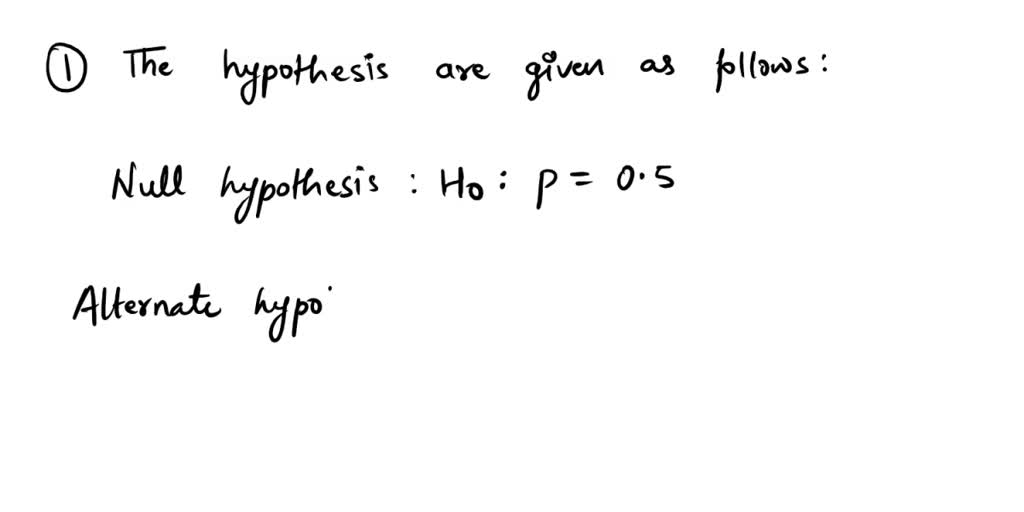 ① The hypothesis are given as follows:
Null hypothesis : H₀ : p = 0.5
Alternate hypo